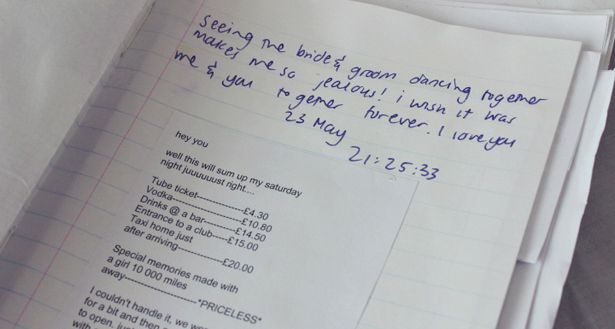 Seeing the bride & groom dancing together
makes me so jealous! i wish it was
me & you together forever. I love you
23 May
21:25:33
hey you
well this will sum up my saturday
night juuuuuust nght....
Tube ticket-----------£4.30
Vodka-----------------£10.80
Drinks @ a bar--------£14.50
Entrance to a club----£15.00
Taxi home just
after arriving----------£20.00
Special memories made with
a girl 10 000 miles
away---------------*PRICELESS*
I couldn't handle it, we
for a bit and then
to open,
with